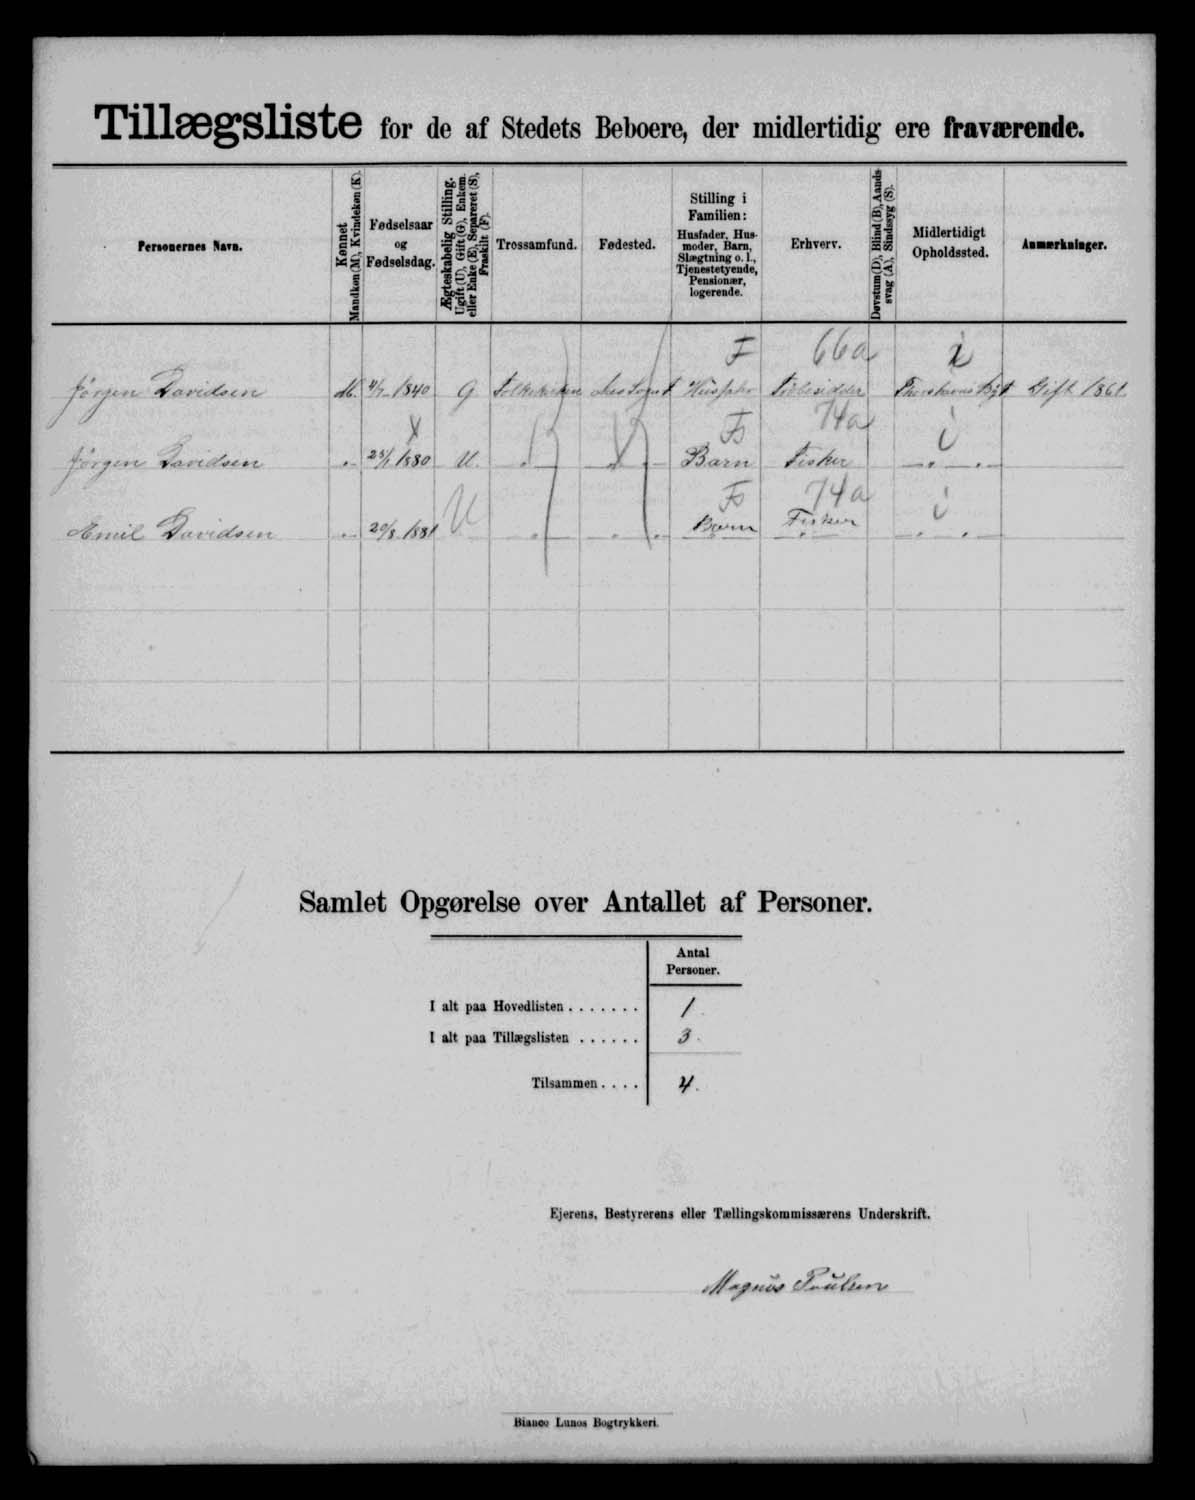 Tillægsliste for de af Stedets Beboere, der midlertidig ere fraværende.
Personernes Navn.
Kønnet
Mandkøn (M), Kvindekøn (K).
Fødselsaar
og
Fødselsdag.
Ægteskabelig Stilling.
Ugift (U), Gift (G), Enkem.
eller Enke (E), Separeret (S),
Fraskilt (F).
Trossamfund.
Fødested.
Stilling i
Familien:
Husfader, Hus-
moder, Barn,
Slægtning o. l.,
Tjenestetyende,
Pensionær,
logerende.
Erhverv.
Døvstum (D), Blind (B), Aands-
svag (A), Sindssyg (S).
Midlertidigt
Opholdssted.
Anmærkninger.
F 66a i
Jörgen Davidsen M. 4/7 1840 G. Folkekirken Husfader Gift 1861.
F 74a i
Jörgen Davidsen " 25/1 1880 U. " " Barn Fisker " "
F 74a i
Emil Davidsen " 20/8 1881 U " " Barn Fisker " "
Samlet Opgørelse over Antallet af Personer.
Antal
Personer.
I alt paa Hovedlisten . . . . . . . 1.
I alt paa Tillægslisten . . . . . . 3.
Tilsammen . . . . 4.
Ejerens, Bestyrerens eller Tællingskommissærens Underskrift.
Magnus Poulsen
Bianco Lunos Bogtrykkeri.